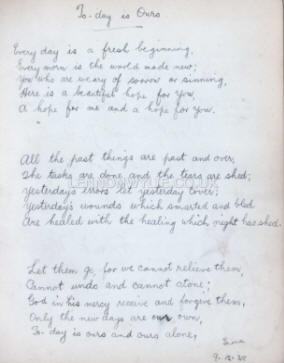 To-day is Ours
Every day is a fresh beginning,
Every morn is the world made new;
You who are weary of sorrow or sinning,
Here is a beautiful hope for you,
A hope for me and a hope for you.
All the past things are past and over,
The tasks are done and the tears are shed;
Yesterday's errors let yesterday cover;
Yesterday's wounds which smarted and bled
Are healed with the healing which night has shed.
Let them go, for we cannot relieve them,
Cannot undo and cannot atone;
God in his mercy receive and forgive them,
Only the new days are our own,
To-day is ours and ours alone,